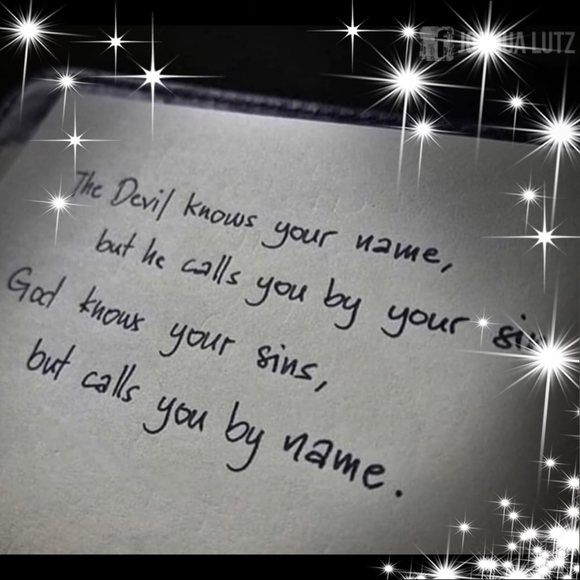 The Devil knows your name,
but he calls you by your
God knows your sins,
but calls you by name.